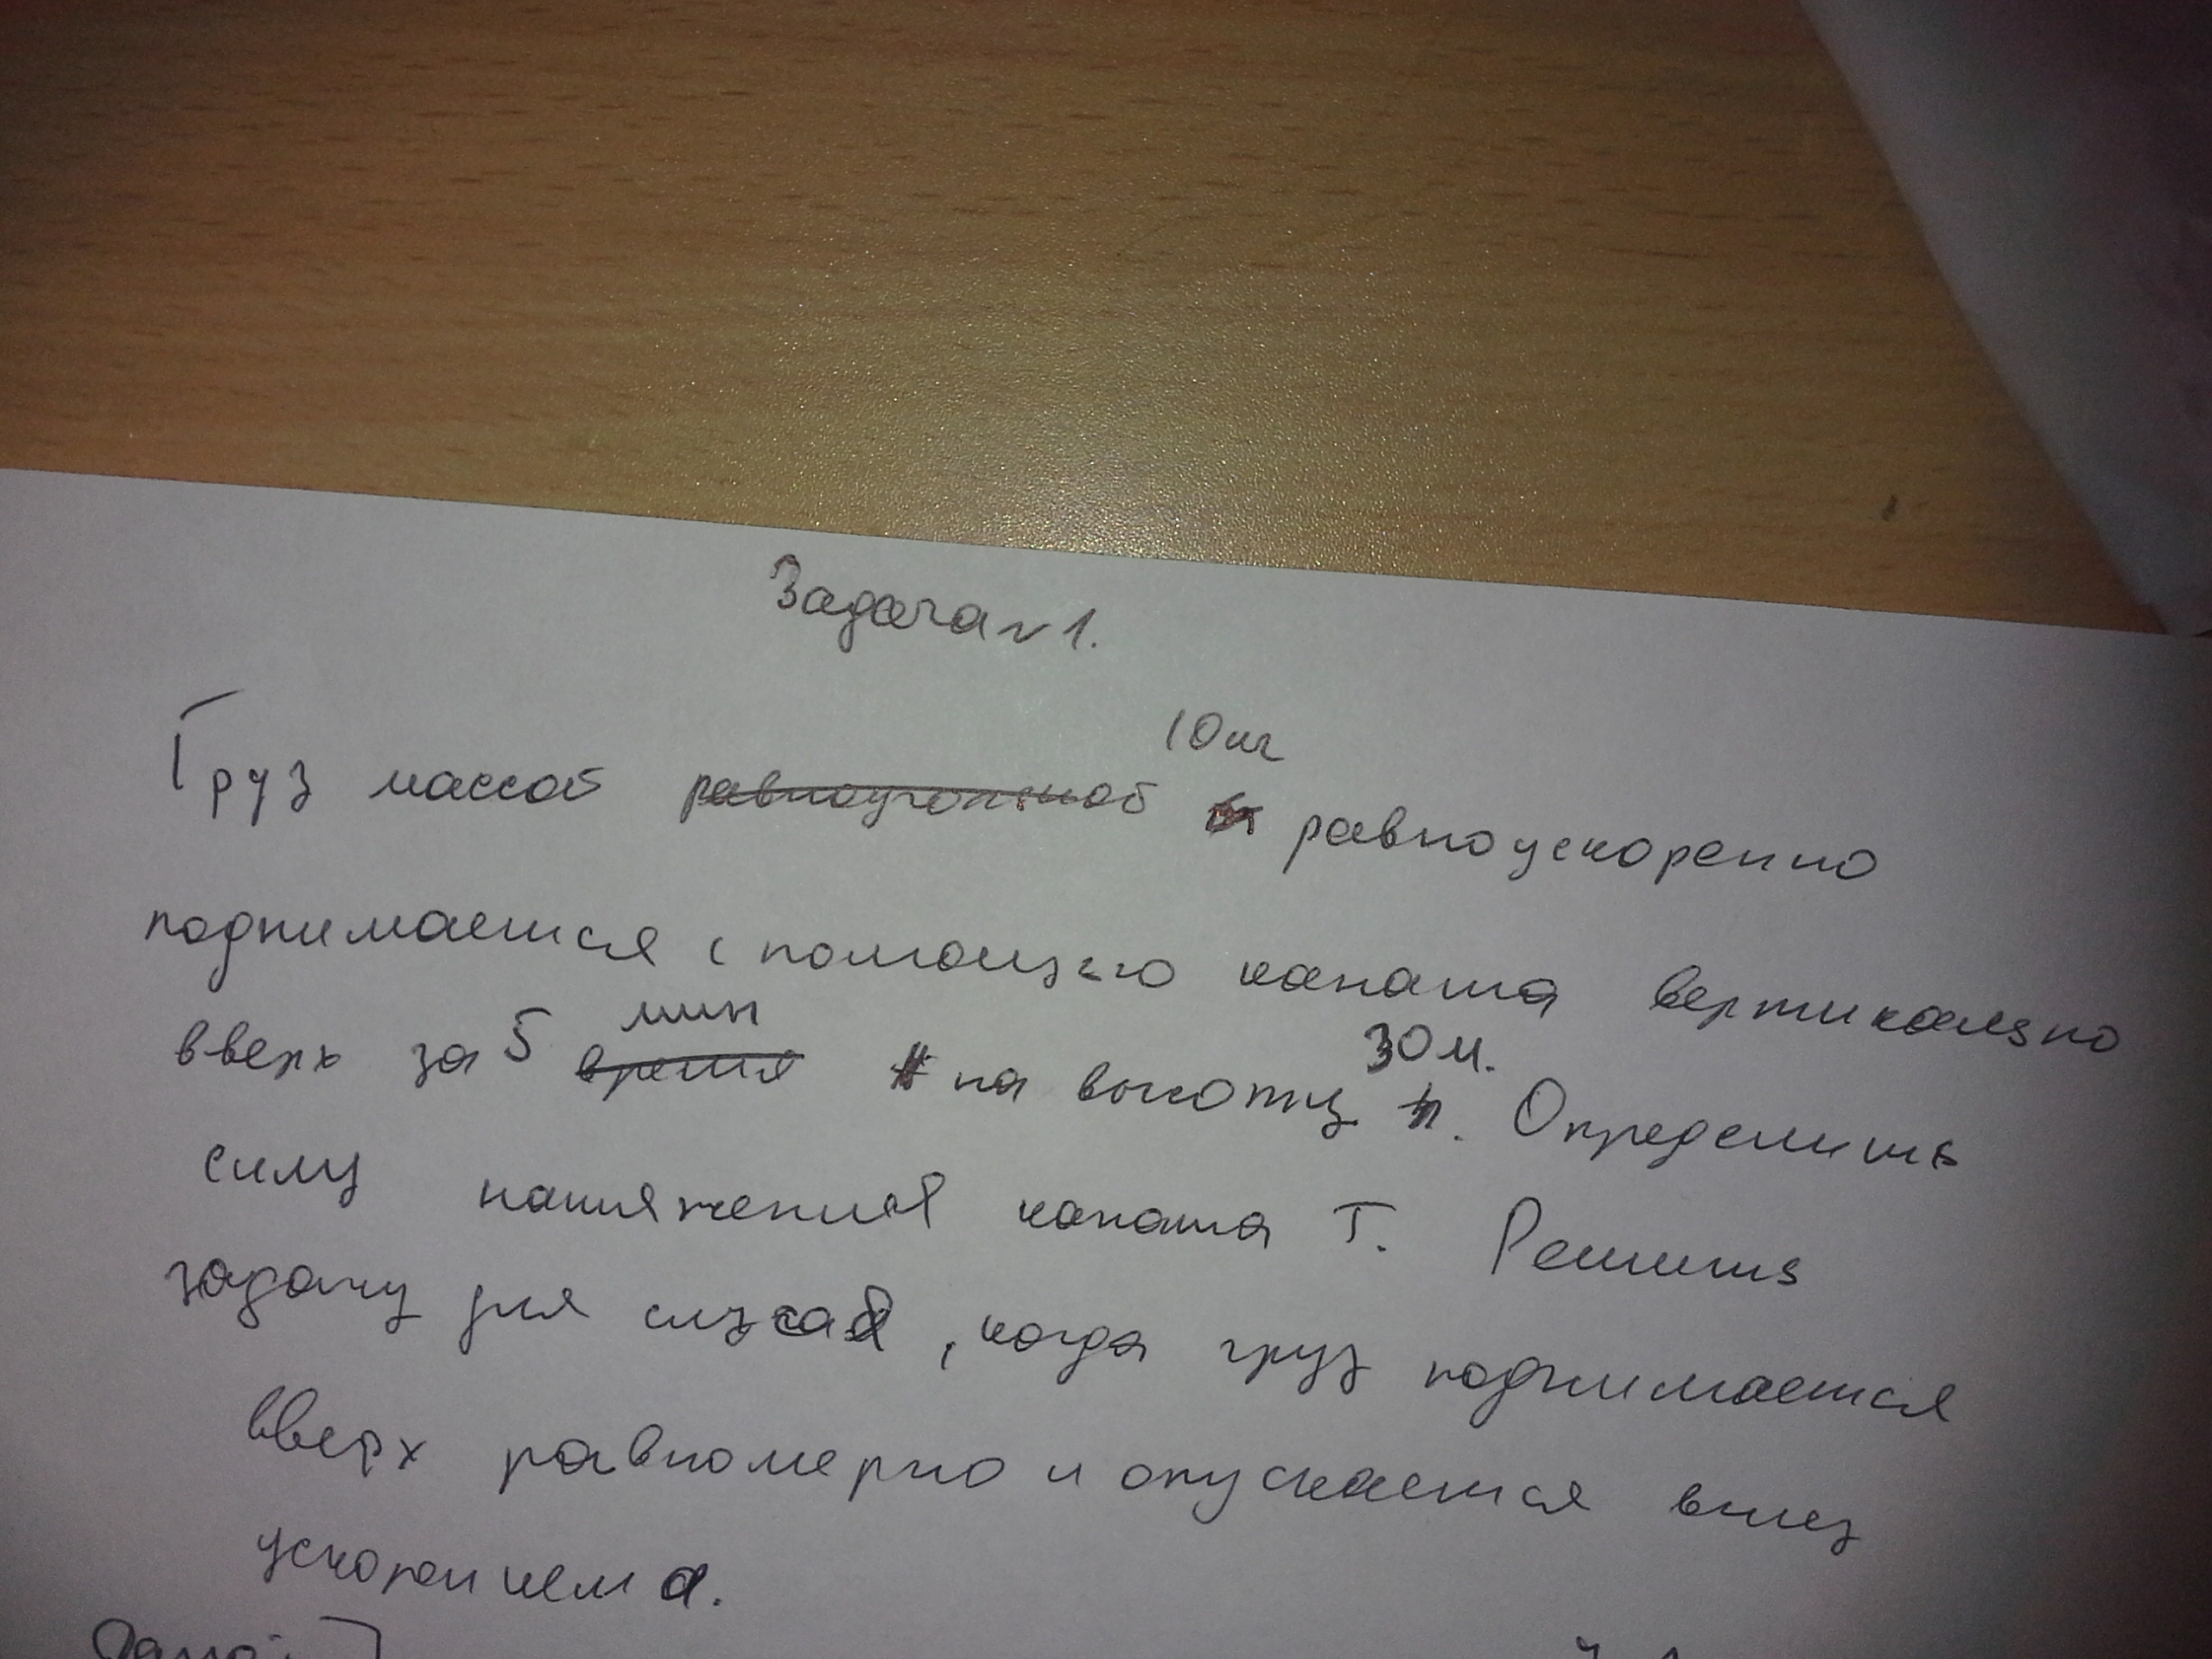 Задача № 1.
10 кг
Груз массой равноускоренно
поднимается с помощью каната вертикально
вверх за 5 мин на высоту 30 м. Определить
силу натяжения каната T. Решить
задачу для случая, когда груз поднимается
вверх равномерно и опускается вниз
ускорением a.
Дано: